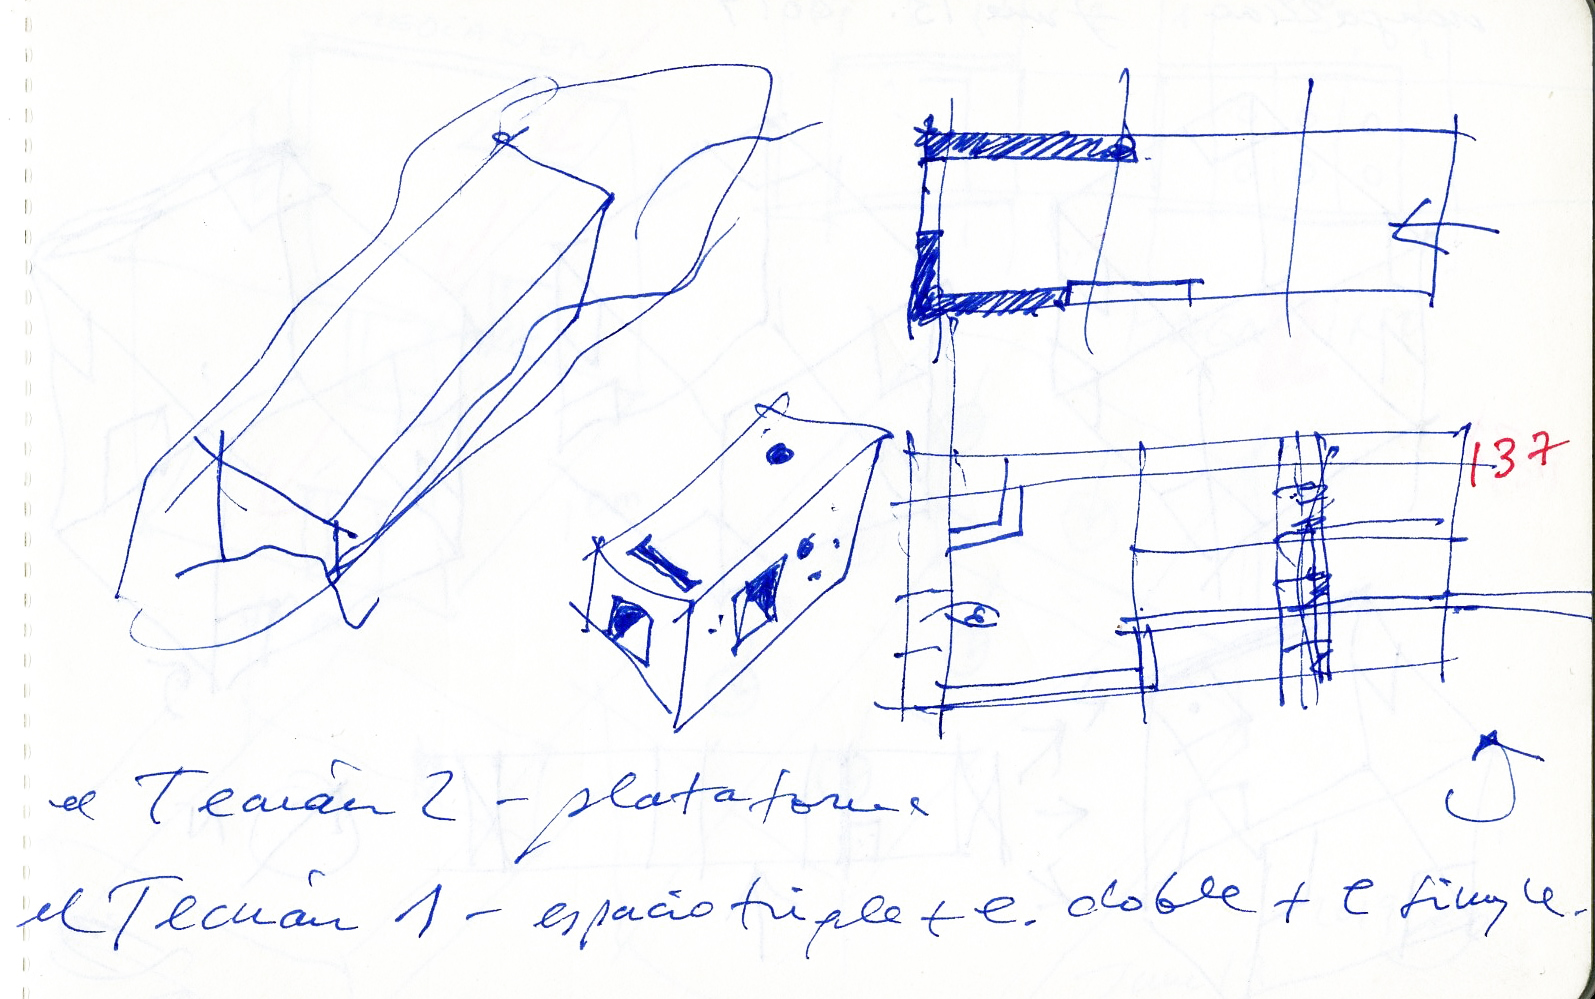 137
el Tecuán 2 - plataforma
el Tecuán 1 - espacio triple + e. doble + e simple.